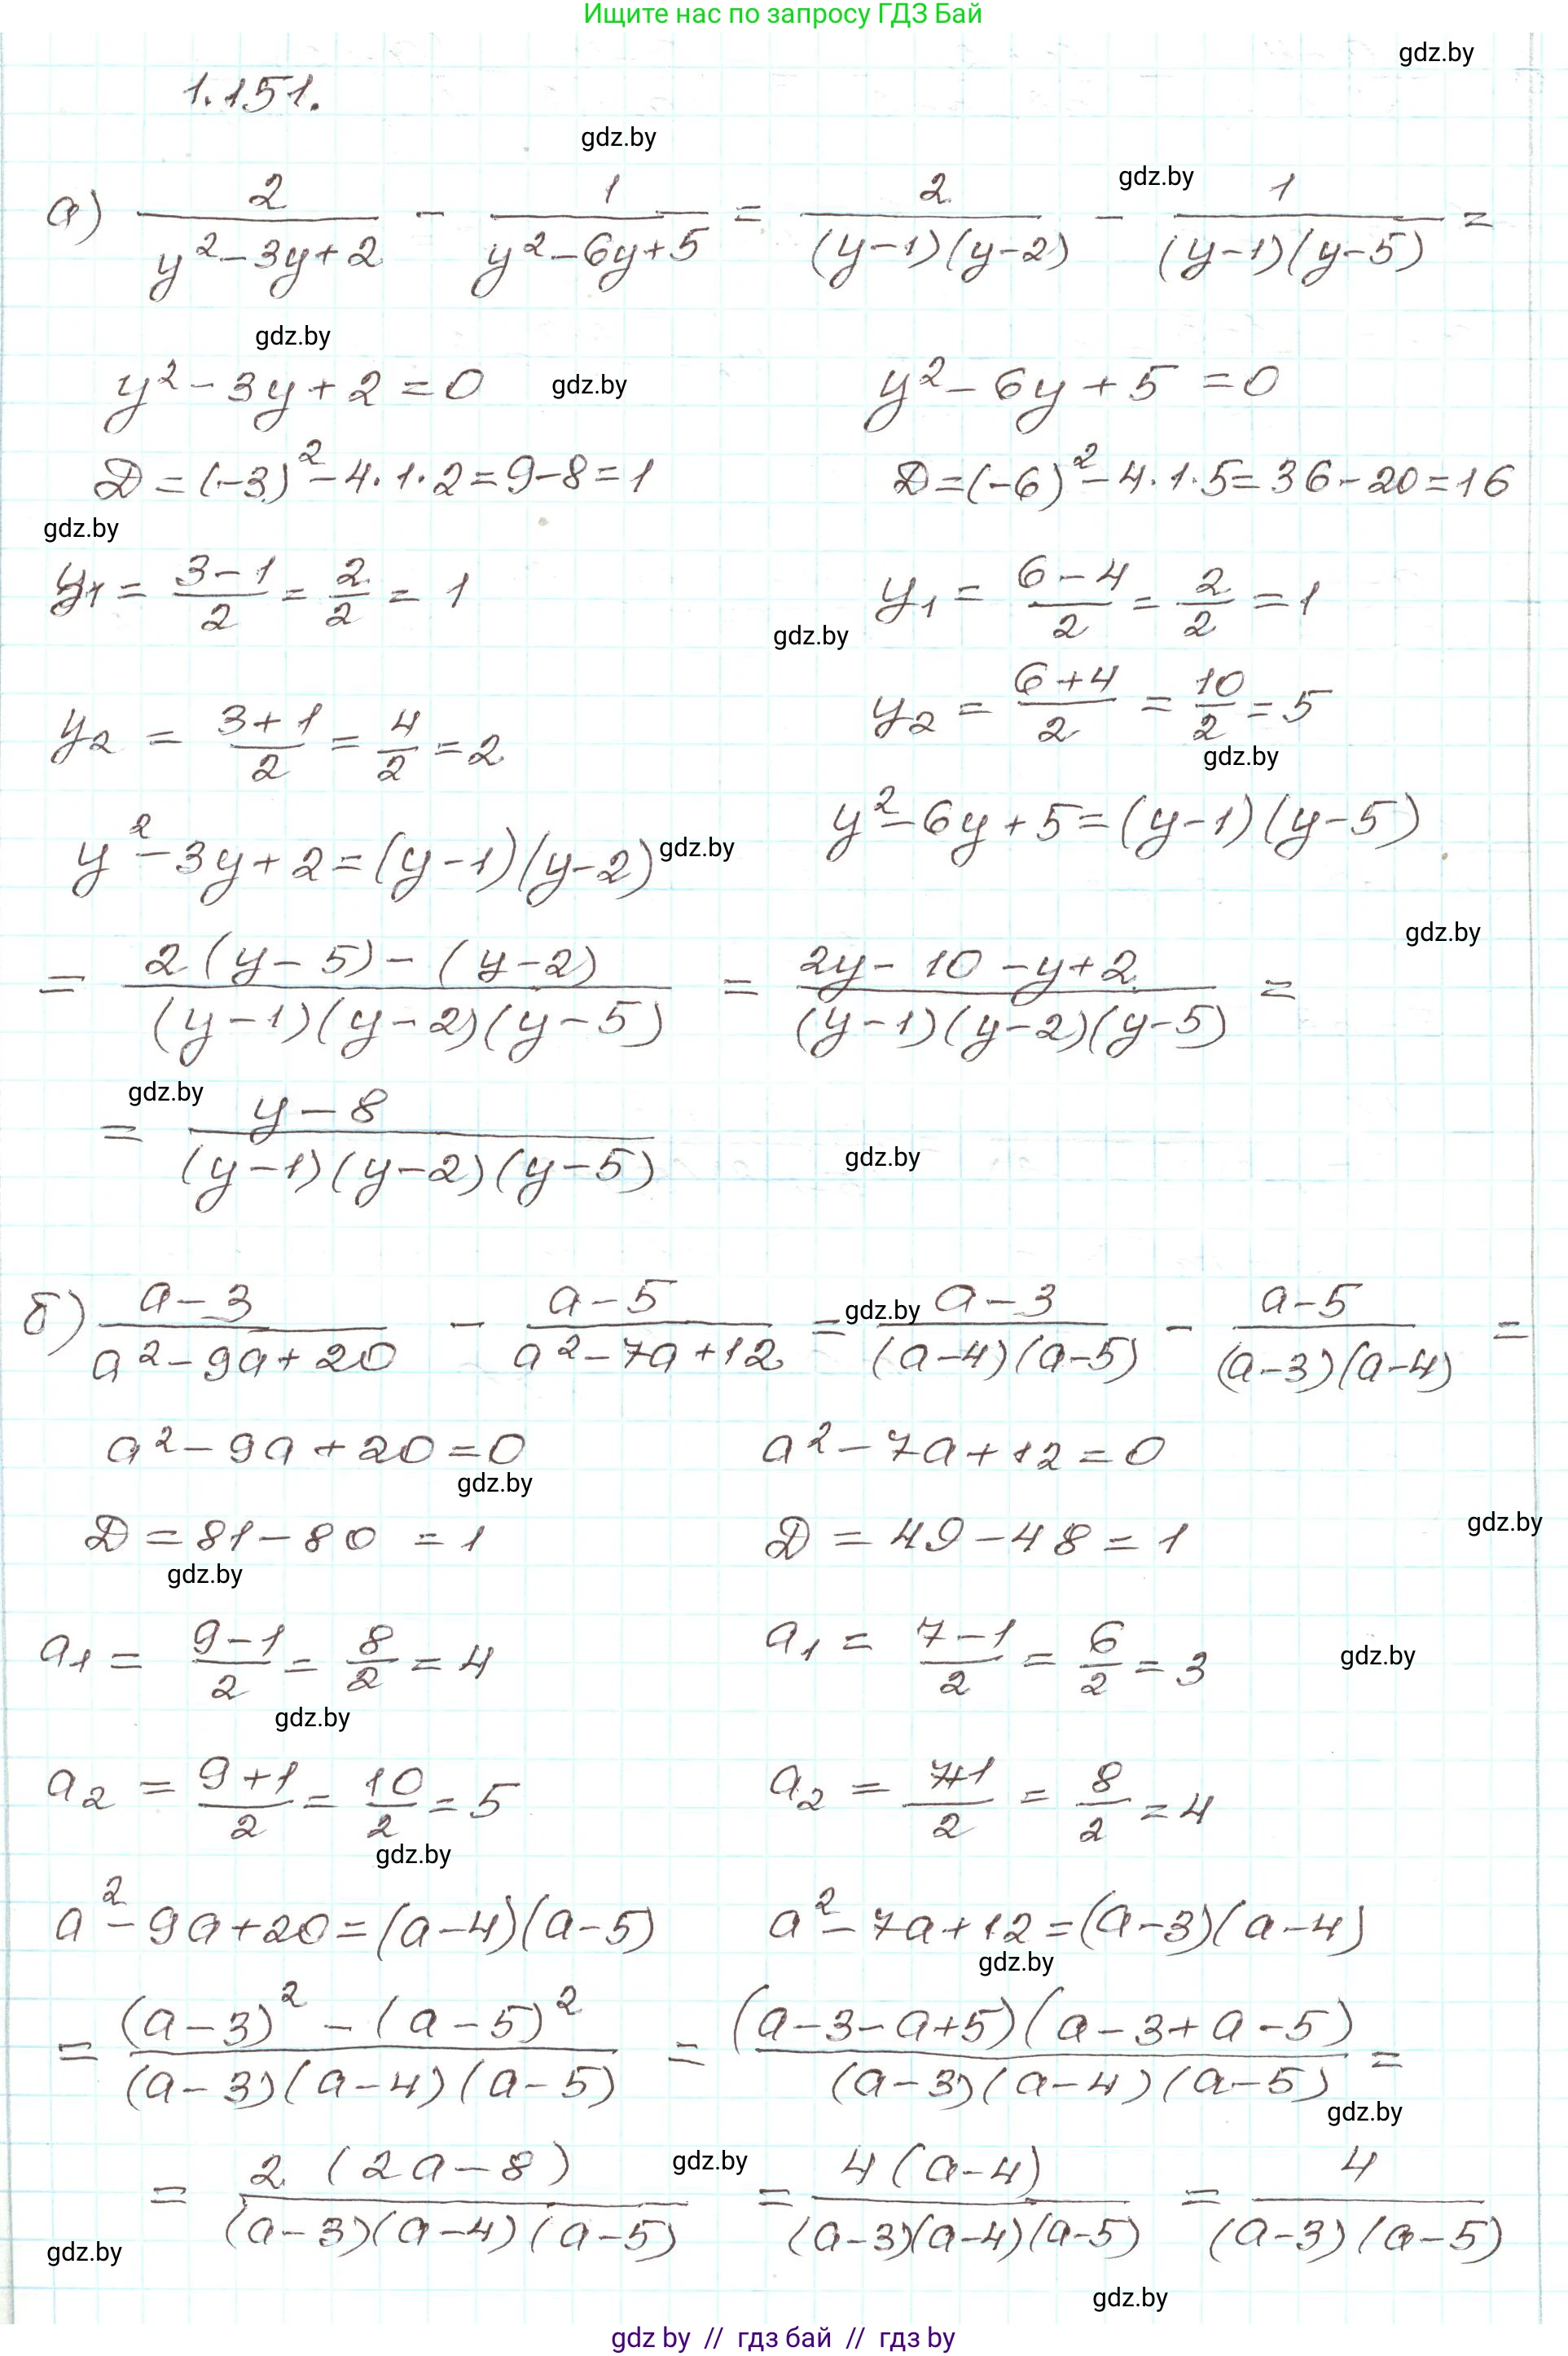 Ищите нас по запросу ГДЗ Бай
gdz.by
1.151.
gdz.by
gdz.by
а) 2/(y²-3y+2) - 1/(y²-6y+5) = 2/((y-1)(y-2)) - 1/((y-1)(y-5)) =
gdz.by
y²-3y+2=0 gdz.by y²-6y+5=0
D=(-3)²-4·1·2=9-8=1 D=(-6)²-4·1·5=36-20=16
gdz.by
y₁ = (3-1)/2 = 2/2 = 1 y₁ = (6-4)/2 = 2/2 = 1
gdz.by
y₂ = (3+1)/2 = 4/2 = 2 y₂ = (6+4)/2 = 10/2 = 5
gdz.by
y²-3y+2=(y-1)(y-2) gdz.by y²-6y+5=(y-1)(y-5)
gdz.by
= (2(y-5)-(y-2))/((y-1)(y-2)(y-5)) = (2y-10-y+2)/((y-1)(y-2)(y-5)) =
gdz.by
= (y-8)/((y-1)(y-2)(y-5))
gdz.by
б) (a-3)/(a²-9a+20) - (a-5)/(a²-7a+12) = gdz.by (a-3)/((a-4)(a-5)) - (a-5)/((a-3)(a-4)) =
a²-9a+20=0 a²-7a+12=0
gdz.by
D=81-80=1 D=49-48=1 gdz.by
gdz.by
a₁ = (9-1)/2 = 8/2 = 4 a₁ = (7-1)/2 = 6/2 = 3 gdz.by
gdz.by
a₂ = (9+1)/2 = 10/2 = 5 a₂ = (7+1)/2 = 8/2 = 4
gdz.by
a²-9a+20=(a-4)(a-5) a²-7a+12=(a-3)(a-4)
gdz.by
= ((a-3)²-(a-5)²)/((a-3)(a-4)(a-5)) = ((a-3-a+5)(a-3+a-5))/((a-3)(a-4)(a-5)) =
gdz.by
= (2(2a-8))/((a-3)(a-4)(a-5)) gdz.by = (4(a-4))/((a-3)(a-4)(a-5)) = 4/((a-3)(a-5))
gdz.by
gdz.by
gdz by // гдз бай // гдз by